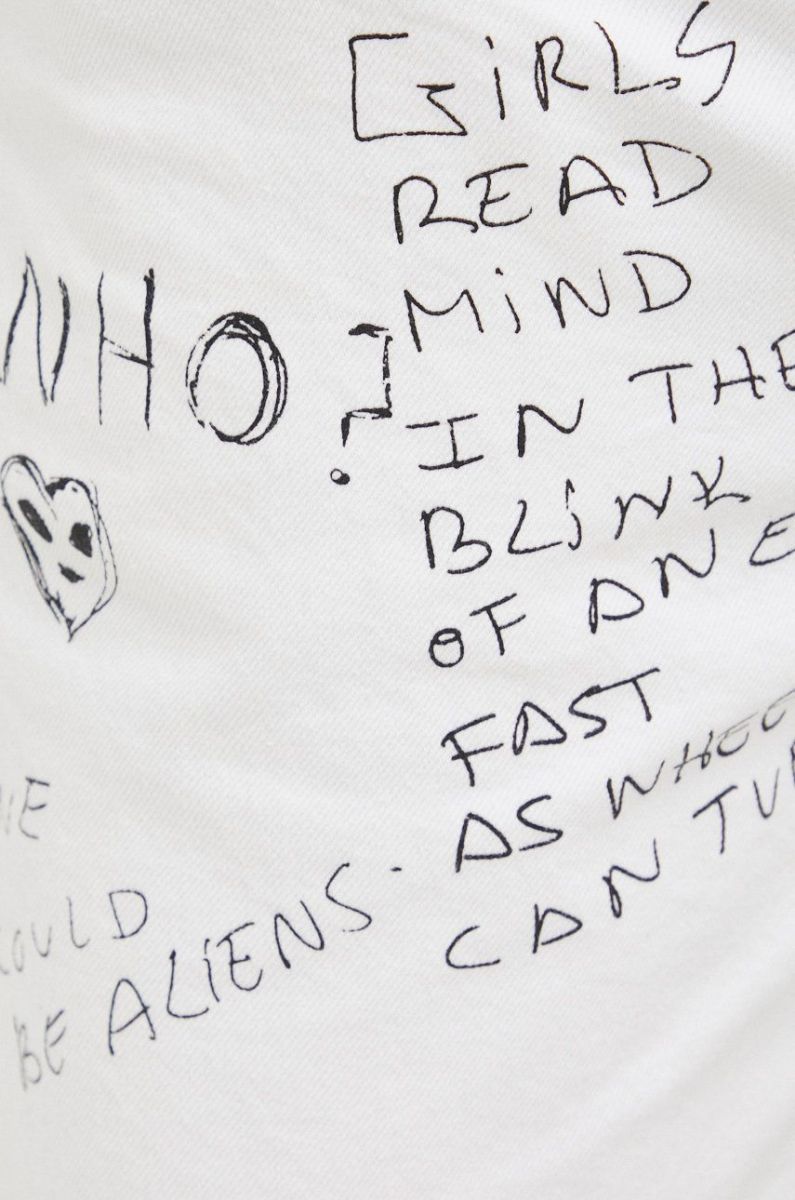 WHO ?
GiRLS
READ
MiND
IN THE
BLiNK
OF AN E
FAST
AS WHEE
CAN TUR
WE
COULD
BE ALiENS.